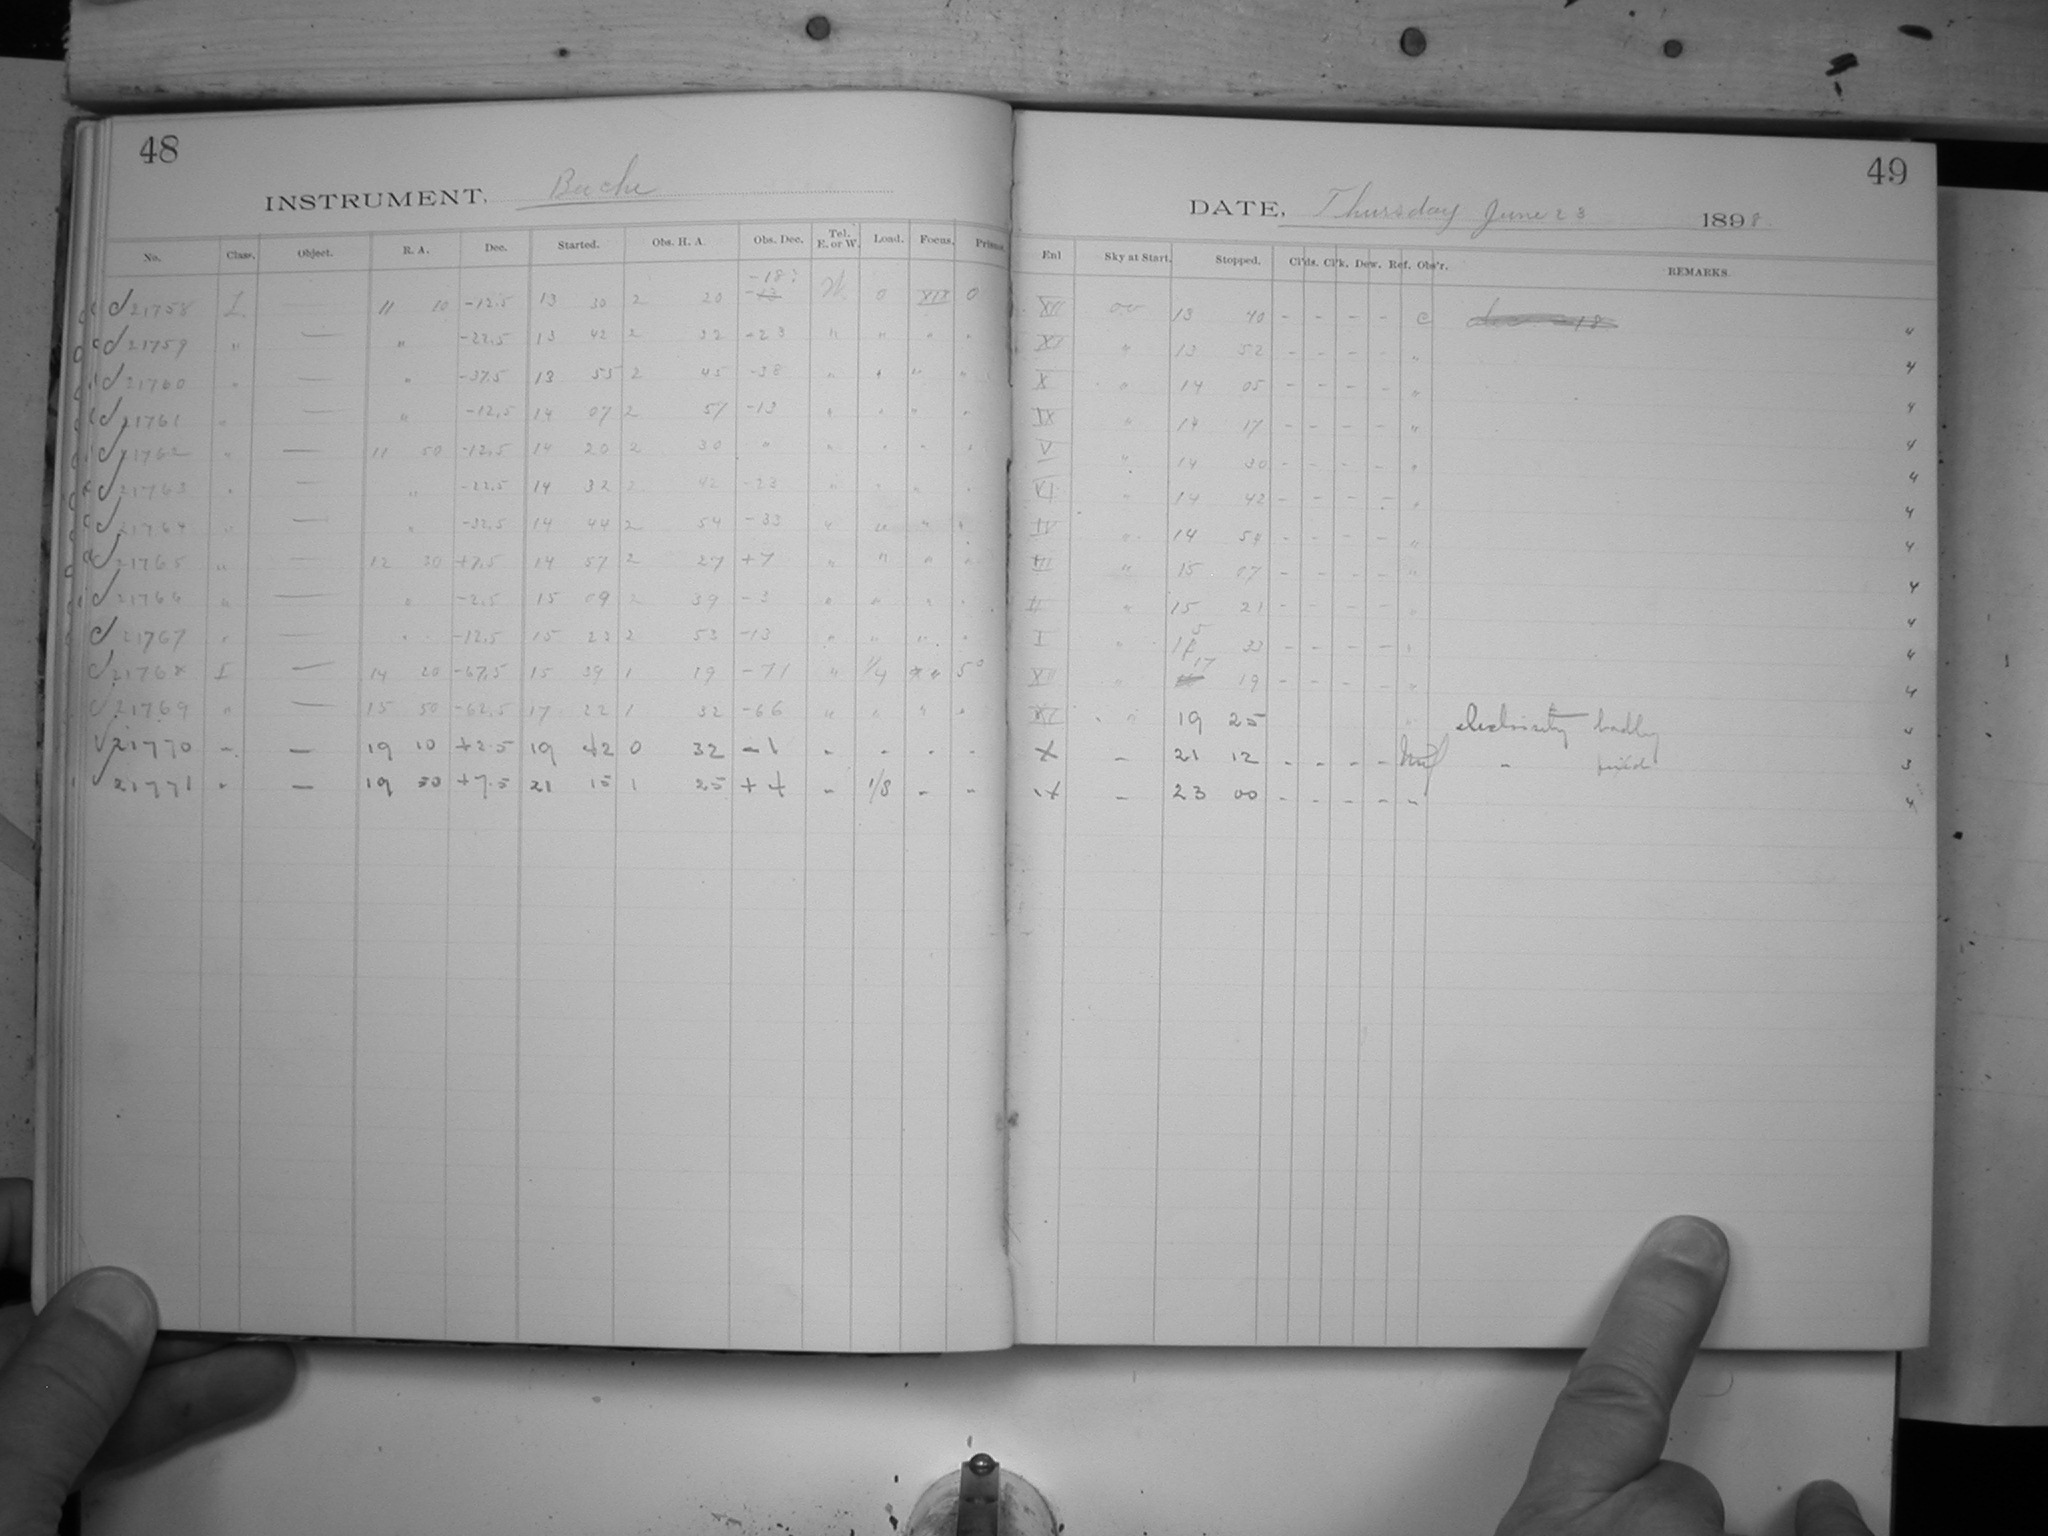 48
INSTRUMENT, Bache
No. Class. Object. R. A. Dec. Started. Obs. H. A. Obs. Dec. Tel. E. or W. Load. Focus. Prisms.
21758 I. 11 10 -12.5 13 30 2 20 -18? W 0 XIX 0
21759 " — " -22.5 13 42 2 32 -23 " " " "
21760 " — " -37.5 13 55 2 45 -38 " " " "
21761 " — " -12.5 14 07 2 57 -13 " " " "
21762 " — 11 50 -12.5 14 20 2 30 " " " " "
21763 " — " -22.5 14 32 2 42 -23 " " " "
21764 " — " -32.5 14 44 2 54 -33 " " " "
21765 " — 12 30 +7.5 14 57 2 27 +7 " " " "
21766 " — " -2.5 15 09 2 39 -3 " " " "
21767 " — " -12.5 15 23 2 53 -13 " " " "
21768 I — 14 20 -67.5 15 39 1 19 -71 " 1/4 5°
21769 " — 15 50 -62.5 17 22 1 32 -66 " " " "
21770 " — 19 10 +2.5 19 42 0 32 -1 " " " "
21771 " — 19 50 +7.5 21 15 1 25 +4 " 1/8 " "
49
DATE, Thursday June 23 1898
Enl Sky at Start. Stopped. Cl'ds. Cl'k. Dew. Ref. Obs'r. REMARKS.
XII 00 13 40 - - - - C 4
XI " 13 52 - - - - " 4
X " 14 05 - - - - " 4
IX " 14 17 - - - - " 4
V " 14 30 - - - - " 4
VI " 14 42 - - - - " 4
IV " 14 54 - - - - " 4
III " 15 07 - - - - " 4
II " 15 21 - - - - " 4
I " 15 33 - - - - " 4
XII " 17 19 - - - - " 4
XI " 19 25 " electricity badly 4
X " 21 12 - - - - " 3
IX " 23 00 - - - - " 4